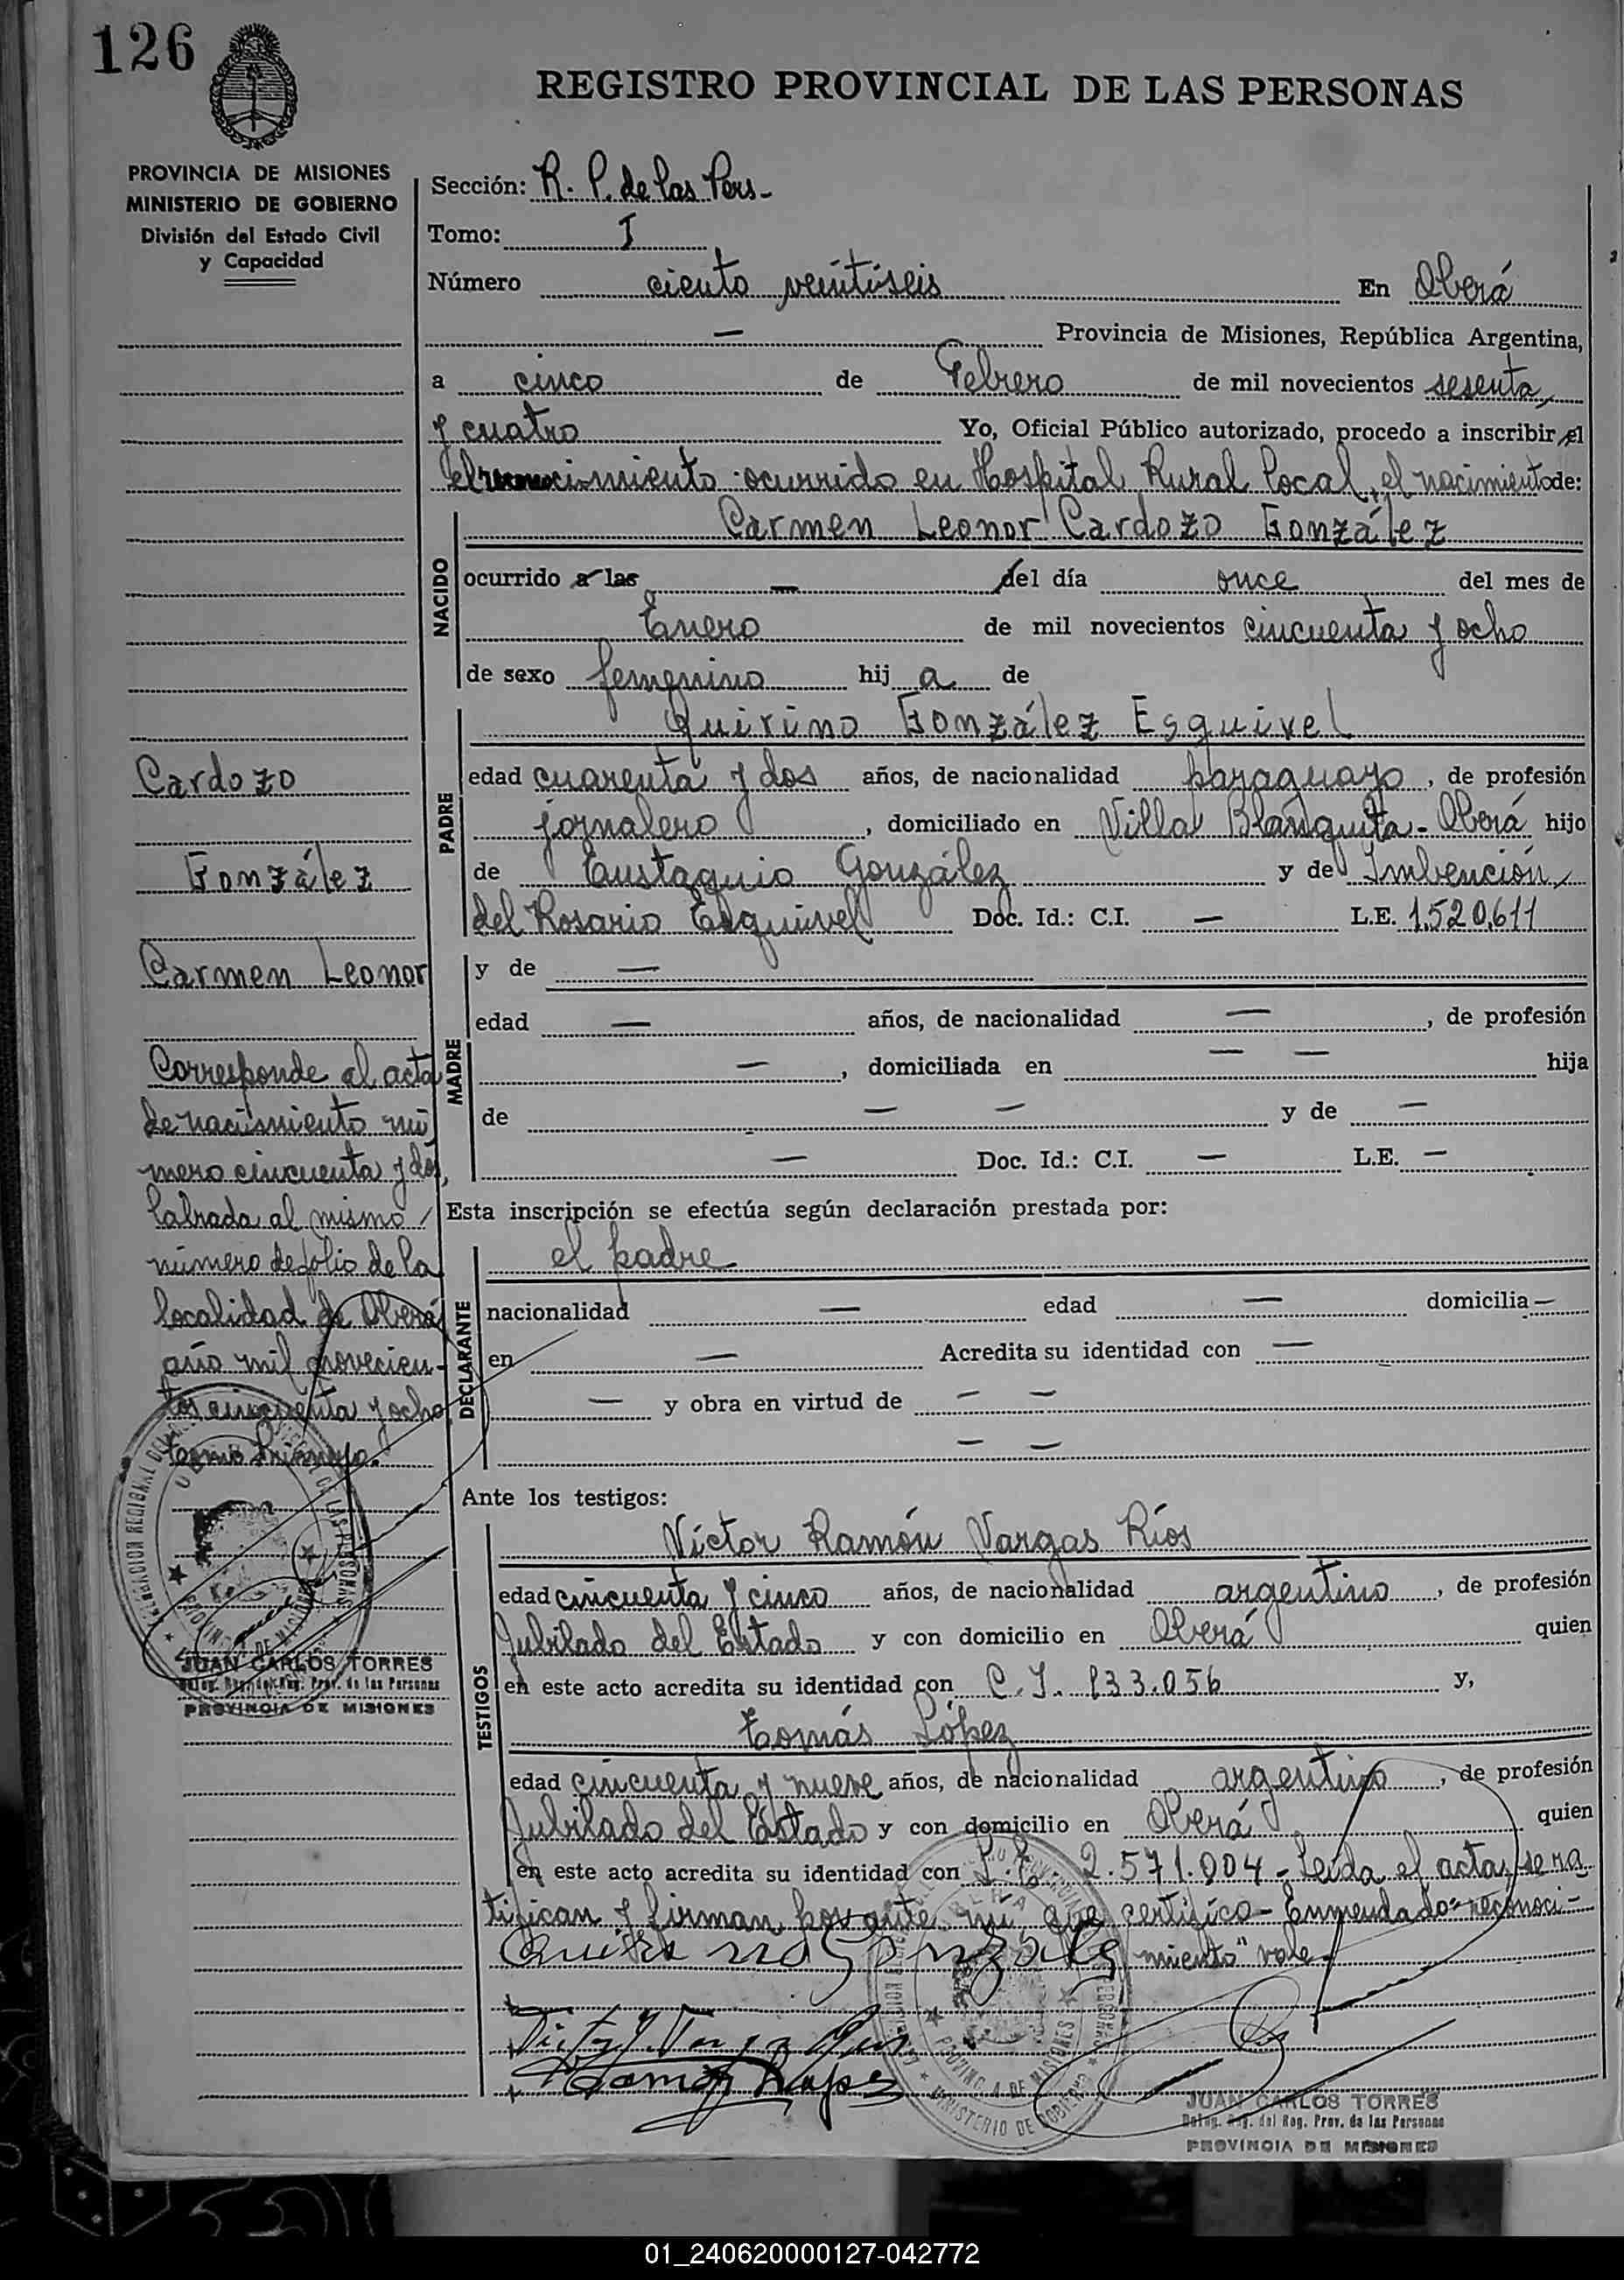 126
REGISTRO PROVINCIAL DE LAS PERSONAS
PROVINCIA DE MISIONES
MINISTERIO DE GOBIERNO
División del Estado Civil
y Capacidad
Sección: R. P. de las Pers-
Tomo: I
Número ciento veintiseis En Oberá
— Provincia de Misiones, República Argentina,
a cinco de Febrero de mil novecientos sesenta
y cuatro Yo, Oficial Público autorizado, procedo a inscribir el
el reconocimiento ocurrido en Hospital Rural local, el nacimiento de:
NACIDO
Carmen Leonor Cardozo González
ocurrido a las — del día once del mes de
Enero de mil novecientos cincuenta y ocho
de sexo femenino hij a de
PADRE
Quirino González Esquivel
edad cuarenta y dos años, de nacionalidad paraguayo, de profesión
jornalero, domiciliado en Villa Blanquita - Oberá hijo
de Eustaquio González y de Imbención
del Rosario Esquivel Doc. Id.: C.I. — L.E. 1.520.611
MADRE
y de —
edad — años, de nacionalidad —, de profesión
—, domiciliada en — — hija
de — — y de —
— Doc. Id.: C.I. — L.E. —
Esta inscripción se efectúa según declaración prestada por:
DECLARANTE
el padre
nacionalidad — edad — domicilia —
en — Acredita su identidad con —
— y obra en virtud de — —
— —
Ante los testigos:
TESTIGOS
Víctor Ramón Vargas Ríos
edad cincuenta y cinco años, de nacionalidad argentino, de profesión
Jubilado del Estado y con domicilio en Oberá quien
en este acto acredita su identidad con C. I. 133.056 y,
Tomás López
edad cincuenta y nueve años, de nacionalidad argentino, de profesión
Jubilado del Estado y con domicilio en Oberá quien
en este acto acredita su identidad con 2.571.004 - Leída el acta, se ra
tifican y firman por ante mí que certifico - Enmendado "reconoci-
miento" vale.
Cardozo
González
Carmen Leonor
Corresponde al acta
de nacimiento nú
mero cincuenta y dos,
labrada al mismo
número de folio de la
localidad de Oberá
año mil novecien-
tos cincuenta y ocho
tomo primero.
JUAN CARLOS TORRES
Deleg. Reg. del Reg. Prov. de las Personas
PROVINCIA DE MISIONES
JUAN CARLOS TORRES
Deleg. Reg. del Reg. Prov. de las Personas
PROVINCIA DE MISIONES
PROVINCIA DE MISIONES
MINISTERIO DE GOBIERNO
01_240620000127-042772